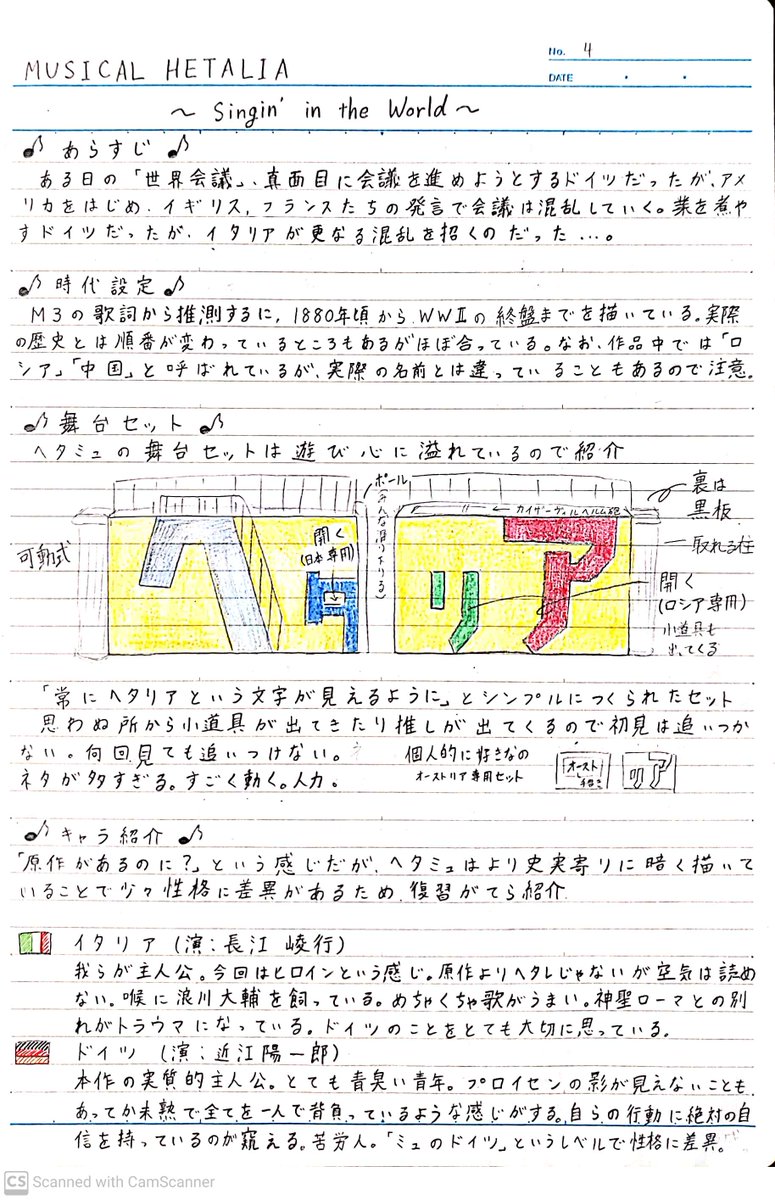 No. 4
DATE
MUSICAL HETALIA
～ Singin' in the World ～
♪ あらすじ ♪
ある日の「世界会議」、真面目に会議を進めようとするドイツだったが、アメ
リカをはじめ、イギリス、フランスたちの発言で会議は混乱していく。業を煮や
すドイツだったが、イタリアが更なる混乱を招くのだった…。
♪ 時代設定 ♪
M3の歌詞から推測するに、1880年頃からWWⅡの終盤までを描いている。実際
の歴史とは順番が変わっているところもあるがほぼ合っている。なお、作品中では「ロ
シア」「中国」と呼ばれているが、実際の名前とは違っていることもあるので注意。
♪ 舞台セット ♪
ヘタミュの舞台セットは遊び心に溢れているので紹介
ポール(みんな滑り下りる)
← カイザーヴィルヘルム砲
裏は
黒板
取れる柱
可動式
開く
(日本専用)
開く
(ロシア専用)
小道具も
出てくる
ヘタリア
「常にヘタリアという文字が見えるように」とシンプルにつくられたセット
思わぬ所から小道具が出てきたり推しが出てくるので初見は追いつか
ない。何回見ても追いつけない。
ネタが多すぎる。すごく動く。人力。
個人的に好きなの
オーストリア専用セット
オースト
リア
♪ キャラ紹介 ♪
「原作があるのに?」という感じだが、ヘタミュはより史実寄りに暗く描いて
いることで少々性格に差異があるため、復習がてら紹介
イタリア (演:長江 崚行)
我らが主人公。今回はヒロインという感じ。原作よりヘタレじゃないが空気は読め
ない。喉に浪川大輔を飼っている。めちゃくちゃ歌がうまい。神聖ローマとの別
れがトラウマになっている。ドイツのことをとても大切に思っている。
ドイツ (演:近江陽一郎)
本作の実質的主人公。とても青臭い青年。プロイセンの影が見えないことも
あってか未熟で全てを一人で背負っているような感じがする。自らの行動に絶対の自
信を持っているのが窺える。苦労人。「ミュのドイツ」というレベルで性格に差異。
CS Scanned with CamScanner